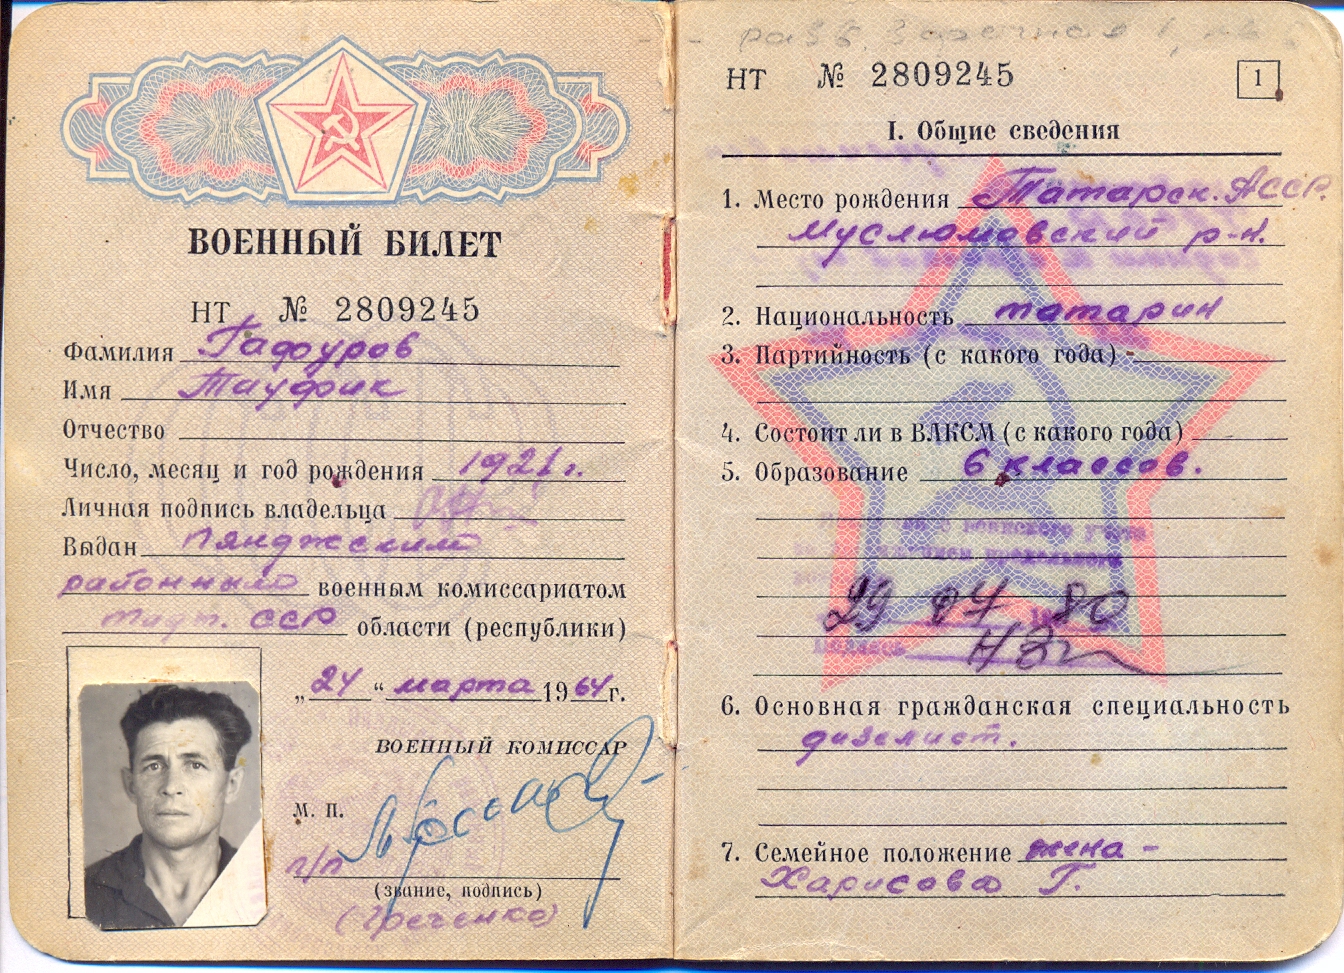 ВОЕННЫЙ БИЛЕТ
НТ № 2809245
Фамилия Гафуров
Имя Тауфик
Отчество
Число, месяц и год рождения 1921 г.
Личная подпись владельца
Выдан Пянджским
районным военным комиссариатом
тадж. ССР области (республики)
„24“ марта 1964 г.
ВОЕННЫЙ КОМИССАР
М. П.
п/п
(звание, подпись)
(Греченко)
НТ № 2809245
1
I. Общие сведения
1. Место рождения Татарск. АССР.
Муслюмовский р-н.
2. Национальность татарин
3. Партийность (с какого года) -
4. Состоит ли в ВЛКСМ (с какого года)
5. Образование 6 классов.
с воинского учета
предельного
29 07 1980
6. Основная гражданская специальность
дизелист.
7. Семейное положение жена -
Харисова Г.